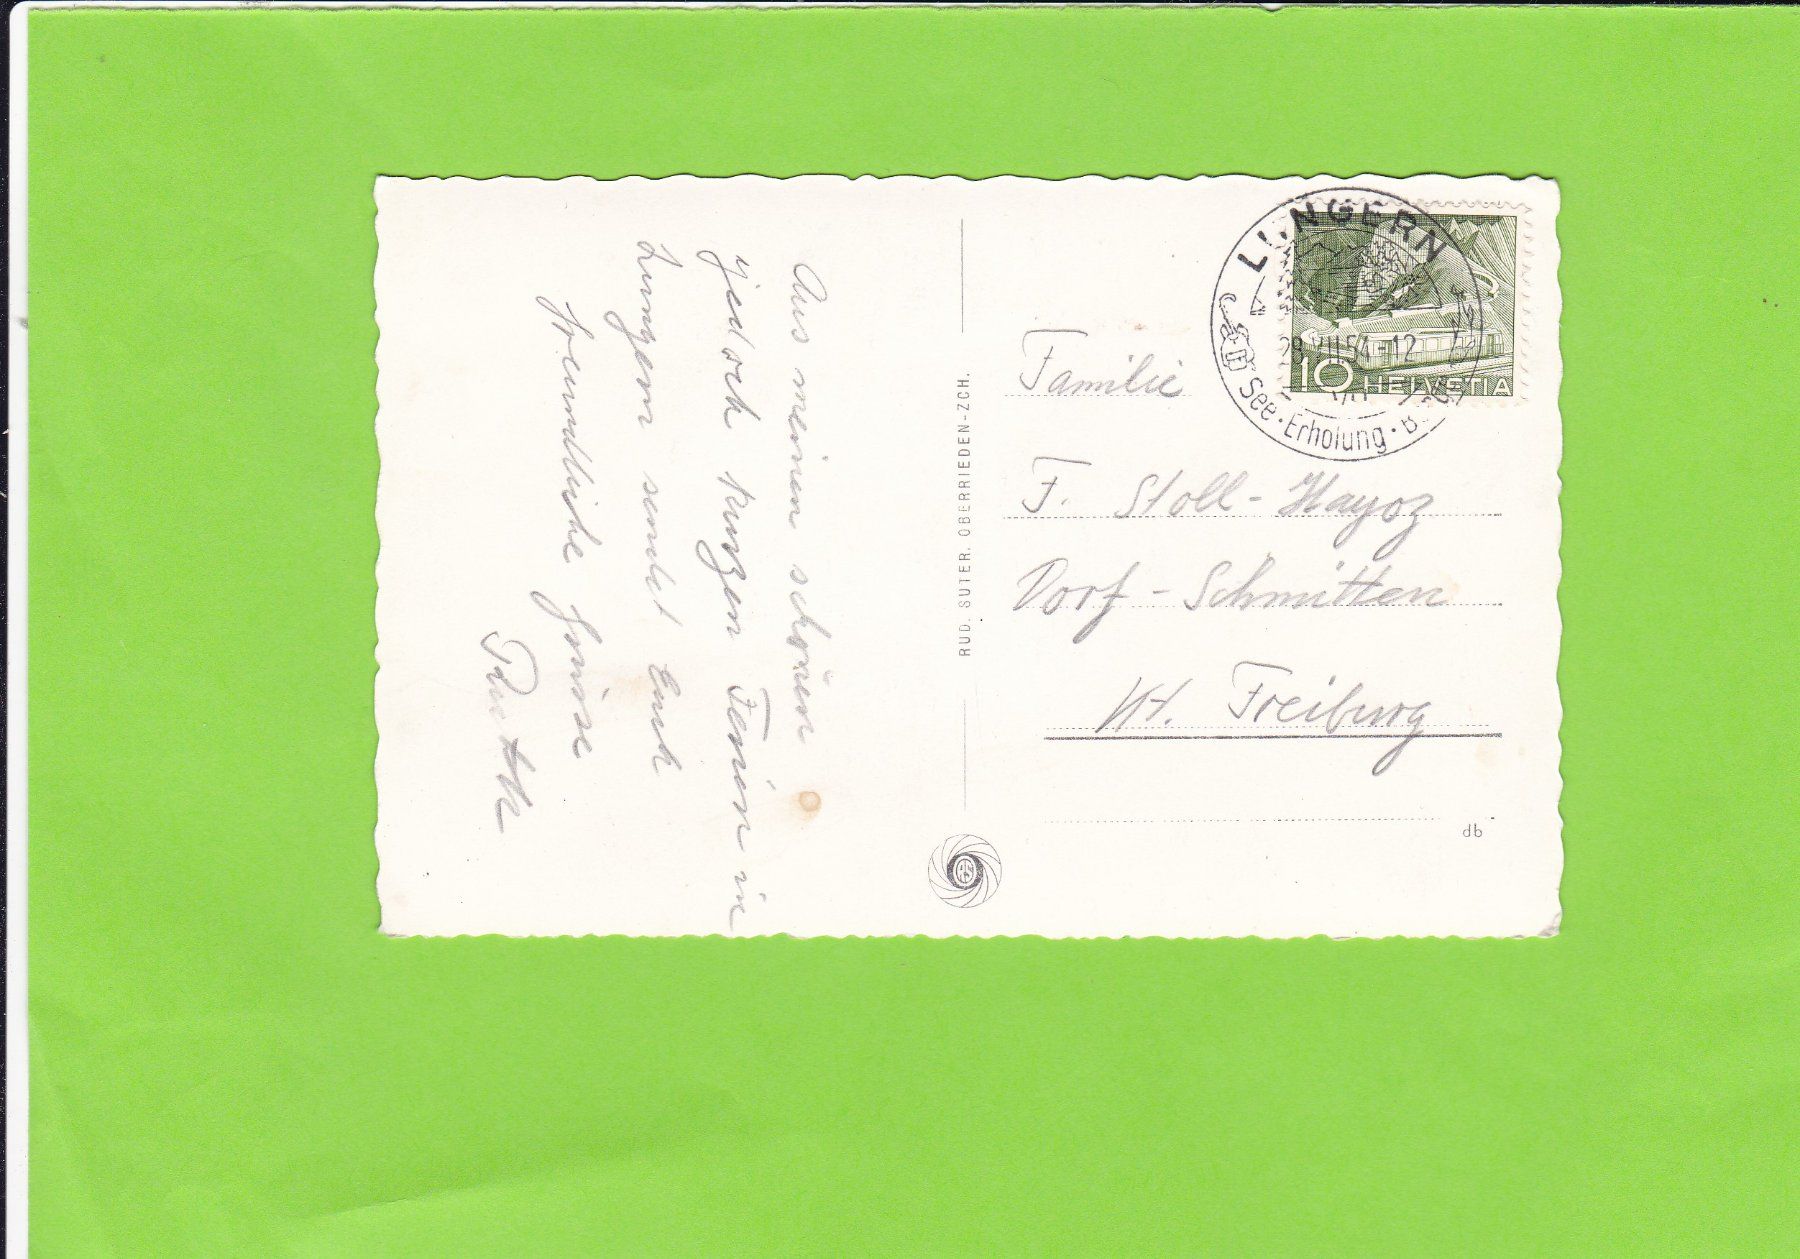 Aus meinen schönen
jedoch kurzen Ferien in
Lungern sendet Euch
freundliche Grüsse
RUD. SUTER. OBERRIEDEN-ZCH.
LUNGERN
28.VII.54-12
See·Erholung·
10 HELVETIA
Familie
F. Stoll-Hayoz
Dorf-Schmitten
Kt. Freiburg
db